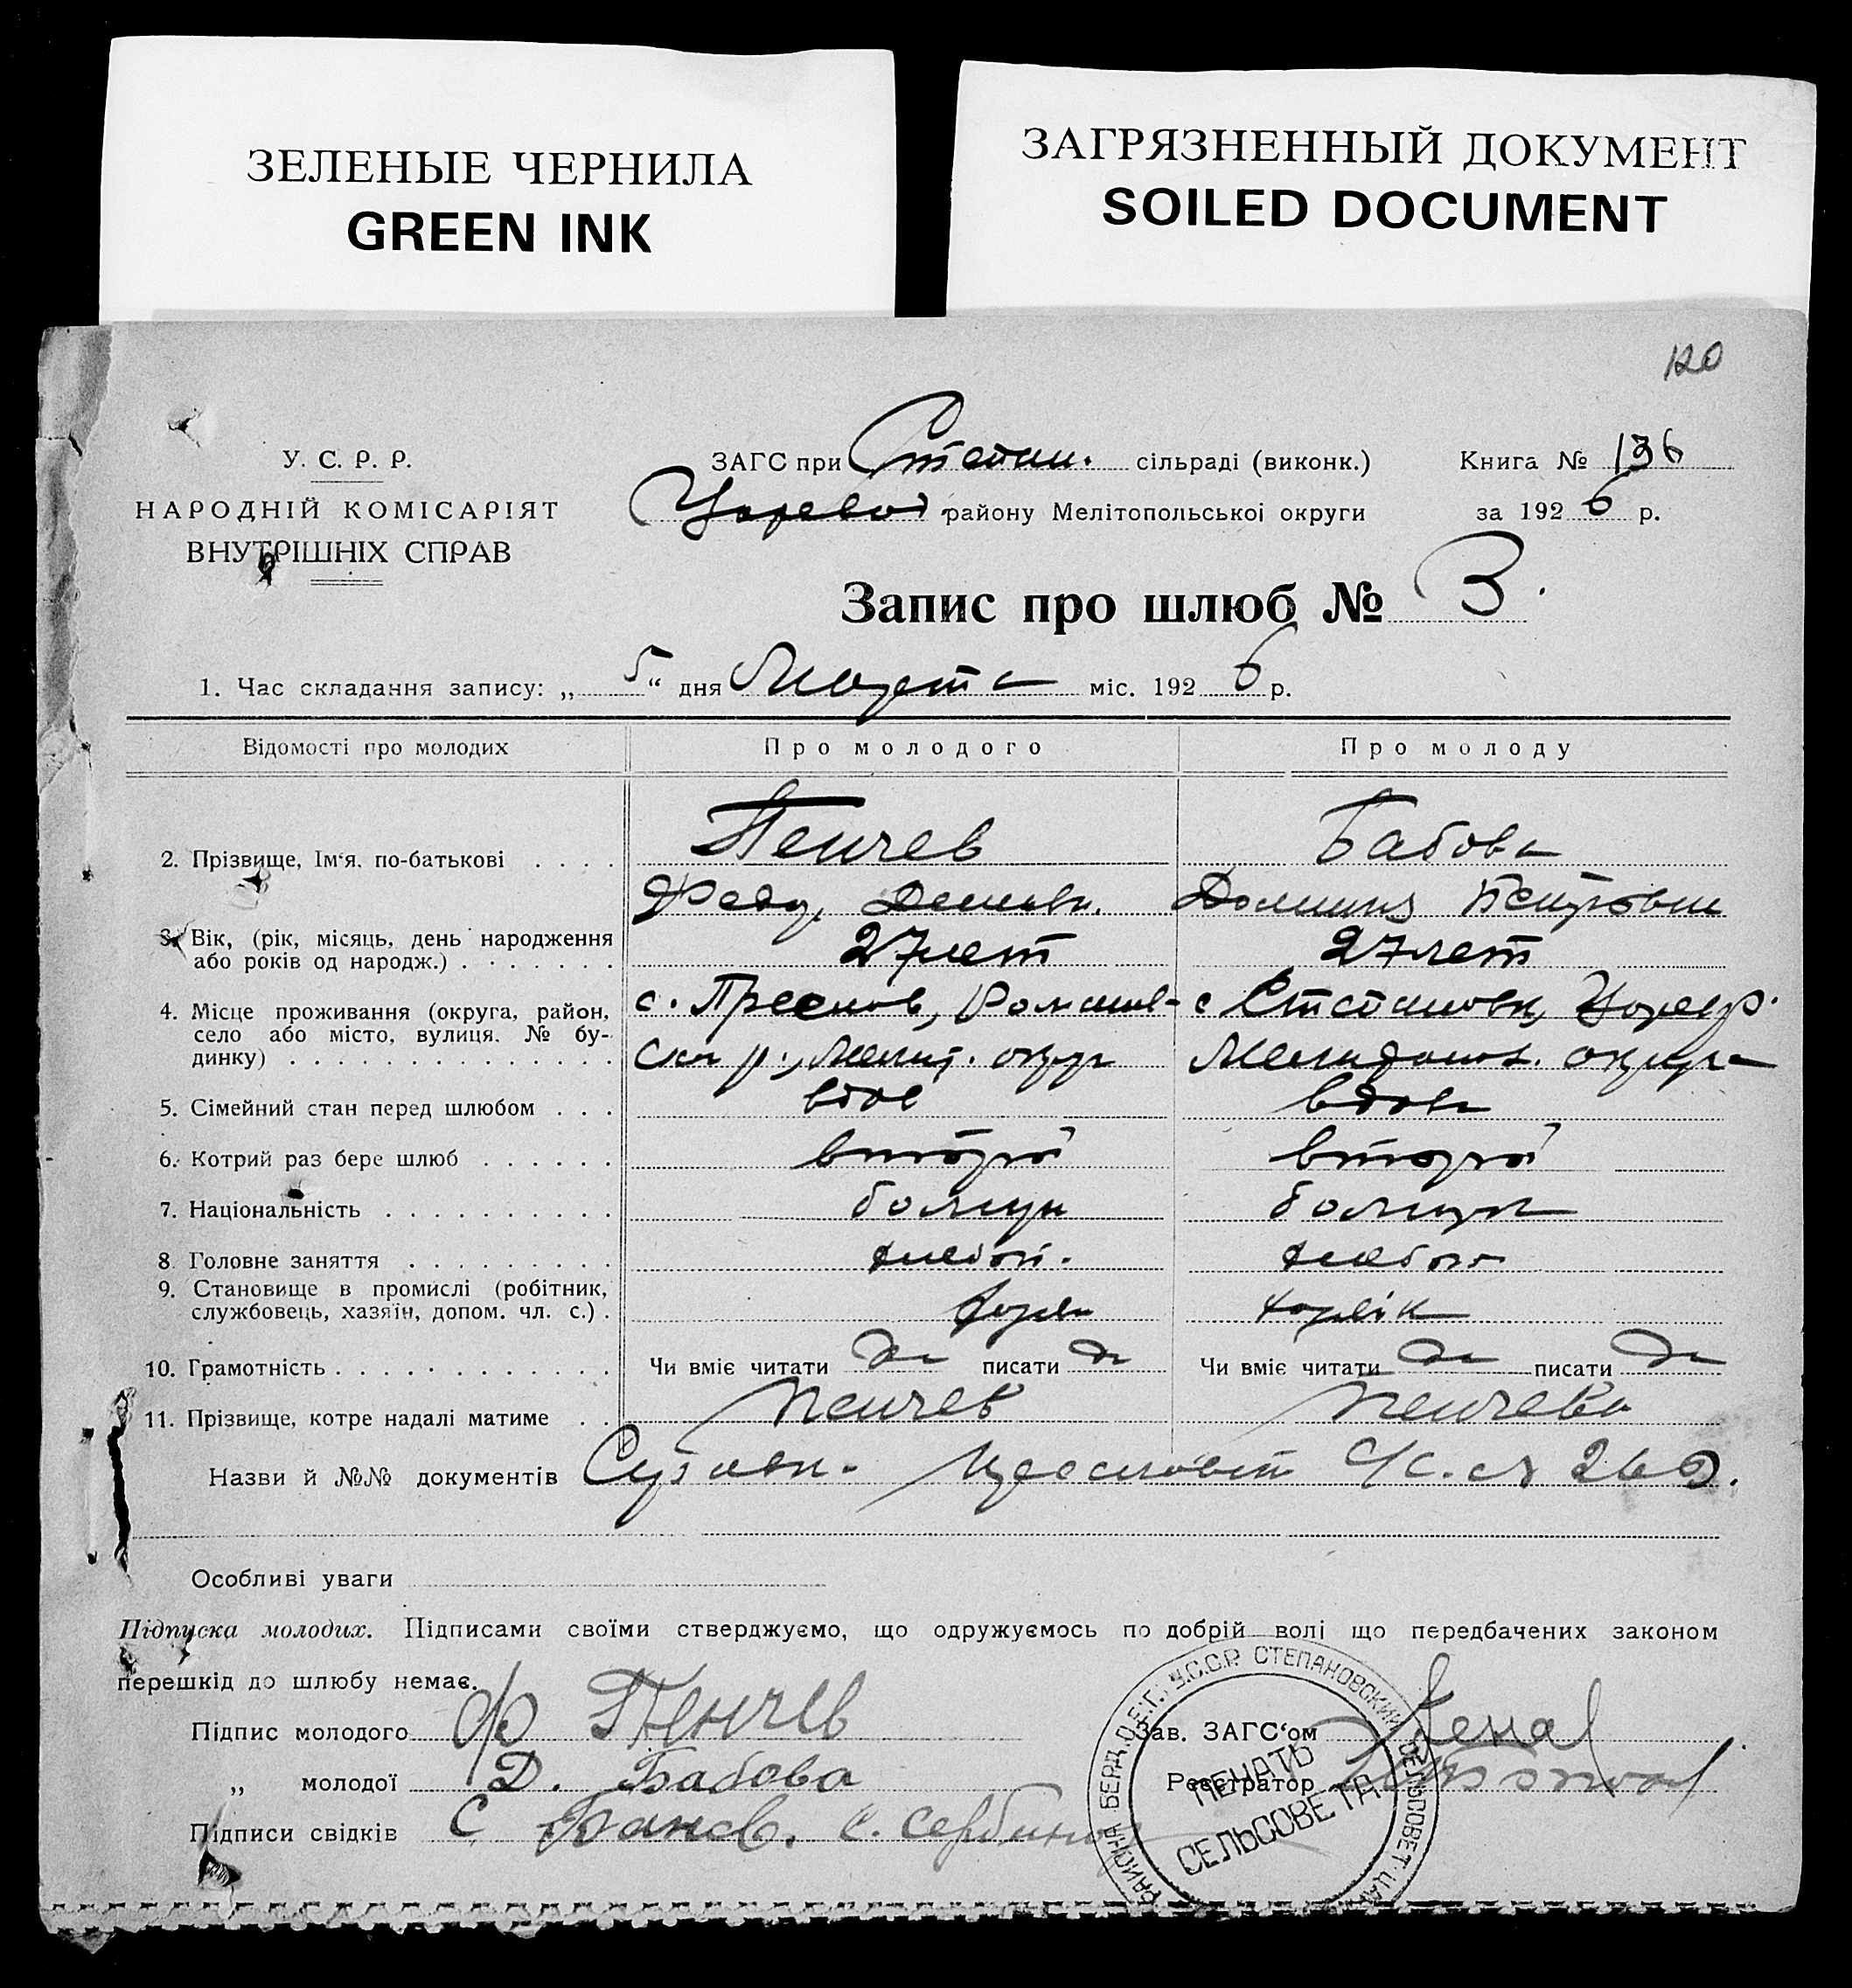 ЗЕЛЕНЫЕ ЧЕРНИЛА
GREEN INK
ЗАГРЯЗНЕННЫЙ ДОКУМЕНТ
SOILED DOCUMENT
120
У. С. Р. Р.
НАРОДНІЙ КОМІСАРІЯТ
ВНУТРІШНІХ СПРАВ
ЗАГС при Степан. сільраді (виконк.)
Царевод району Мелітопольської округи
Книга № 136
за 1926 р.
Запис про шлюб № 3.
1. Час складання запису: „5“ дня Марта міс. 1926 р.
Відомості про молодих Про молодого Про молоду
2. Прізвище, Ім‘я. по-батькові . . . . Пенчев Бабова
Петровн
3. Вік, (рік, місяць, день народження або років од народж.) . . . . . . . 27 лет 27 лет
4. Місце проживання (округа, район, село або місто, вулиця. № будинку) . . . . . . . . . . . . . с. Преслав, Романов- с Степановка, Царев р.
ска р., Мелит. окру Мелитопол. округа
5. Сімейний стан перед шлюбом . . . вдов вдова
6. Котрий раз бере шлюб . . . . . . второй второй
7. Національність . . . . . . . . . . болгар болгарк
8 Головне заняття . . . . . . . . . хлебоп. хлебоп
9. Становище в промислі (робітник, службовець, хазяїн, допом. чл. с.) .
10. Грамотність . . . . . . . . . . . Чи вміє читати да писати да Чи вміє читати да писати да
11. Прізвище, котре надалі матиме . . Пенчев Пенчева
Назви й №№ документів
Особливі уваги
Підписка молодих. Підписами своїми стверджуємо, що одружуємось по добрій волі що передбачених законом
перешкід до шлюбу немає.
Підпис молодого Ф Пенчев
„ молодої Д. Бабова
Підписи свідків С Банев. С. Сербинов
Зав. ЗАГС‘ом
Реєстратор
У.С.С.Р. СТЕПАНОВСКИЙ СЕЛЬСОВЕТ ЦА
РАЙОНА БЕРД. О. Е.Г.
ПЕЧАТЬ
СЕЛЬСОВЕТА